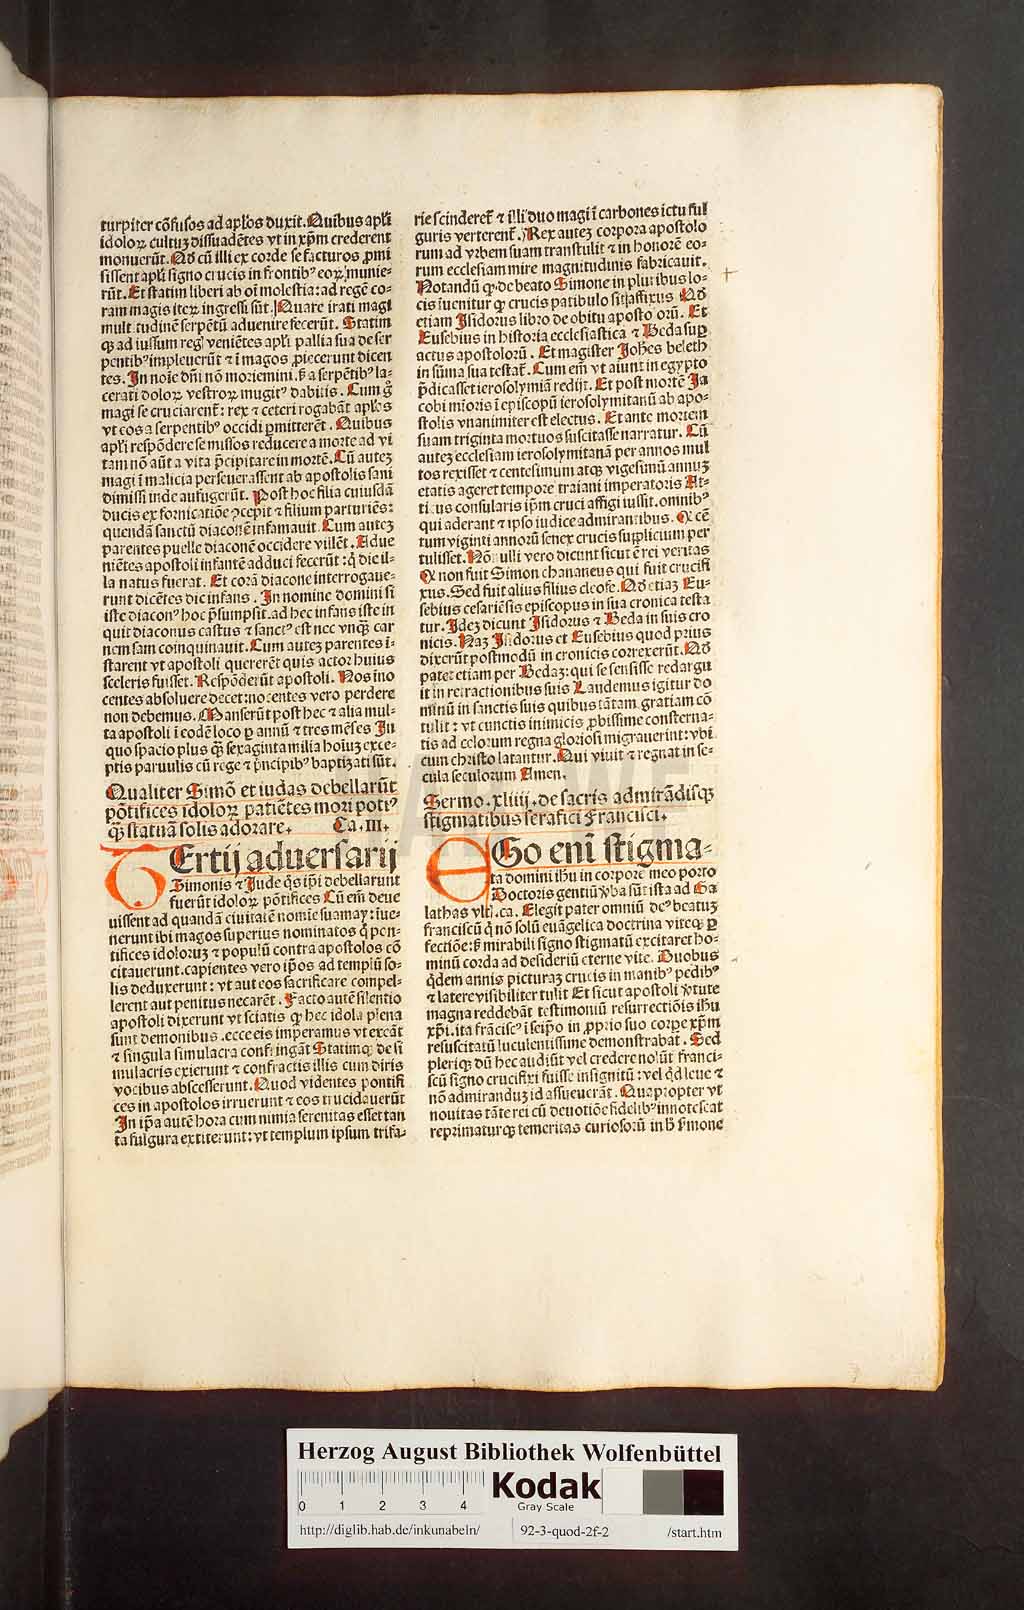 turpiter cõfusos ad aplo̅s duxit. Quibus apli̅
idoloꝝ cultuȝ dissuadẽtes vt in xp̅m crederent
monuerũt. Ad cũ illi ex corde se facturos ꝓmi
sissent apli̅ signo crucis in frontibꝰ eoꝝ munie-
rũt. Et statim liberi ab oĩ molestia: ad regẽ co-
ram magis iteꝝ ingressi sũt. Quare irati magi
multitudinẽ serpẽtũ aduenire fecerũt. Statim
ꝙ ad iussum regꝭ veniẽtes apli̅ pallia sua de ser
pentibꝰ impleuerũt ⁊ ĩ magos ꝓiecerunt dicen
tes. In noĩe dñi nõ moriemini. ſꝫ a serpẽtibꝰ la-
cerati doloꝝ vestroꝝ mugitꝰ dabitis. Cum g̊
magi se cruciarent̃: rex ⁊ ceteri rogabãt aplo̅s
vt eos a serpentibꝰ occidi ꝑmitterẽt. Quibus
apli̅ respõdere se missos reducere a morte ad vi
tam nõ aũt a vita p̃cipitare in mortẽ. Cũ auteȝ
magi ĩ malicia perseuerassent ab apostolis sani
dimissi inde aufugerũt. Post hoc filia cuiusdã
ducis ex fornicatiõe ꝯcepit ⁊ filium parturiẽs:
quendã sanctũ diaconẽ infamauit. Cum auteȝ
parentes puelle diaconẽ occidere vellẽt. Adue
niẽtes apostoli infantẽ adduci fecerũt: q̃ die il-
la natus fuerat. Et corã diacone interrogaue-
runt dicẽtes dic infans. In nomine domini si
iste diaconꝰ hoc p̃sumpsit. ad hec infans iste in
quit diaconus castus ⁊ sanctꝰ est nec vnqȝ car
nem sam coinquinauit. Cum autez parentes ĩ-
starent vt apostoli quererẽt quis actor huius
sceleris fuisset. Respõderũt apostoli. Nos ino
centes absoluere decet: nocentes vero perdere
non debemus. Manserũt post hec ⁊ alia mul-
ta apostoli ĩ eodẽ loco ꝑ annũ ⁊ tres mẽses In
quo spacio plus qȝ sexaginta milia hoĩuȝ exce-
ptis paruulis cũ rege ⁊ p̃ncipibꝰ baptizati sũt.
Qualiter Simõ et iudas debellarũt
põtifices idoloꝝ patiẽtes mori potiꝰ
qȝ statuã solis adorare. Ca. III.
TErtij aduersarij
Simonis ⁊ Jude q̃s ip̃i debellarunt
fuerũt idoloꝝ põtifices Cũ em̃ deue
uissent ad quandã ciuitatẽ nomie suamay: iue-
nerunt ibi magos superius nominatos q̃ pon-
tifices idoloruȝ ⁊ populũ contra apostolos cõ
citauerunt. capientes vero ip̃os ad templũ so-
lis deduxerunt: vt aut eos sacrificare compel-
lerent aut penitus necarẽt. Facto autẽ silentio
apostoli dixerunt vt sciatis ꝙ hec idola plena
sunt demonibus. ecce eis imperamus vt exeãt
⁊ singula simulacra confringãt Statimqȝ de si
mulacris exierunt ⁊ confractis illis cum diris
vocibus abscesserunt. Quod videntes pontifi
ces in apostolos irruerunt ⁊ eos trucidauerũt
In ip̃a autẽ hora cum nimia serenitas esset tan
ta fulgura extiterunt: vt templum ipsum trifa-
rie scinderet̃ ⁊ illi duo magi ĩ carbones ictu ful
guris verterent̃. Rex auteȝ corpora apostolo
rum ad vrbem suam transtulit ⁊ in honorẽ eo-
rum ecclesiam mire magnitudinis fabricauit.
Notandũ ꝙ de beato Simone in pluribus lo-
cis ĩuenitur ꝙ crucis patibulo sit affixus Ad
etiam Isidorus libro de obitu apostolorũ. Et
Eusebius in historia ecclesiastica ⁊ Beda suꝑ
actus apostolorũ. Et magister Johẽs beleth
in sũma sua testat̃. Cum em̃ vt aiunt in egypto
p̃dicasset ierosolymiã redijt. Et post mortẽ Ja
cobi mĩoris ĩ episcopũ ierosolymitanũ ab apo-
stolis vnanimiter est electus. Et ante mortem
suam triginta mortuos suscitasse narratur. Cũ
auteȝ ecclesiam ierosolymitanã per annos mul
tos rexisset ⁊ centesimum atqȝ vigesimũ annuȝ
etatis ageret tempore traiani imperatoris At-
ticus consularis ip̃m cruci affigi iussit. omnibꝰ
qui aderant ⁊ ipso iudice admirantibus. Q cẽ
tum viginti annorũ senex crucis supplicium per
tulisset. Nõnulli vero dicunt sicut ẽ rei veritas
Q non fuit Simon chananeus qui fuit crucifi
xus. Sed fuit alius filius cleofe. Ad etiaȝ Eu-
sebius cesariẽsis episcopus in sua cronica testa
tur. Ideȝ dicunt Isidorus ⁊ Beda in suis cro
nicis. Naȝ Isidorus et Eusebius quod prius
dixerũt postmodũ in cronicis correxerũt. Ad
patet etiam per Bedaȝ: qui se sensisse redargu
it in retractionibus suis Laudemus igitur do
minũ in sanctis suis quibus tãtam gratiam cõ
tulit: vt cunctis inimicis ꝓbissime consterna-
tis ad celorum regna gloriosi migrauerint: vbi
cum christo latantur. Qui viuit ⁊ regnat in se-
cula seculorum Amen.
Sermo. xliiij. de sacris admirãdisqȝ
stigmatibus serafici Francisci.
EGo eni̅ stigma-
ta domini ihu in corpore meo porto
Doctoris gentiũ v̓ba sũt ista ad Ga
lathas vlti. ca. Elegit pater omniũ deꝰ beatuȝ
franciscũ q̃ nõ solũ euãgelica doctrina viteqȝ ꝑ
fectiõe: sȝ mirabili signo stigmatũ excitaret ho-
minũ corda ad desideriũ eterne vite. Duobus
q̃dem annis picturaȝ crucis in manibꝰ pedibꝰ
⁊ latere visibiliter tulit Et sicut apostoli v̓tute
magna reddebãt testimoniũ resurrectiõis ihu
xp̃i. ita frãciscꝰ ĩ seip̃o in ꝓprio suo corpe xp̃m
resuscitatũ luculentissime demonstrabat. Sed
pleriqȝ dũ hec audiũt vel credere nolũt franci-
scũ signo crucifixi fuisse insignitũ: vel q̃d leue ⁊
nõ admiranduȝ id asseuerãt. Quapropter vt
nouitas tãte rei cũ deuotiõe fidelibꝰ innotescat
reprimaturqȝ temeritas curiosorũ in h̃ s̃mone
HAB WF
Herzog August Bibliothek Wolfenbüttel
0 1 2 3 4
Kodak
Gray Scale
http://diglib.hab.de/inkunabeln/ 92-3-quod-2f-2 /start.htm